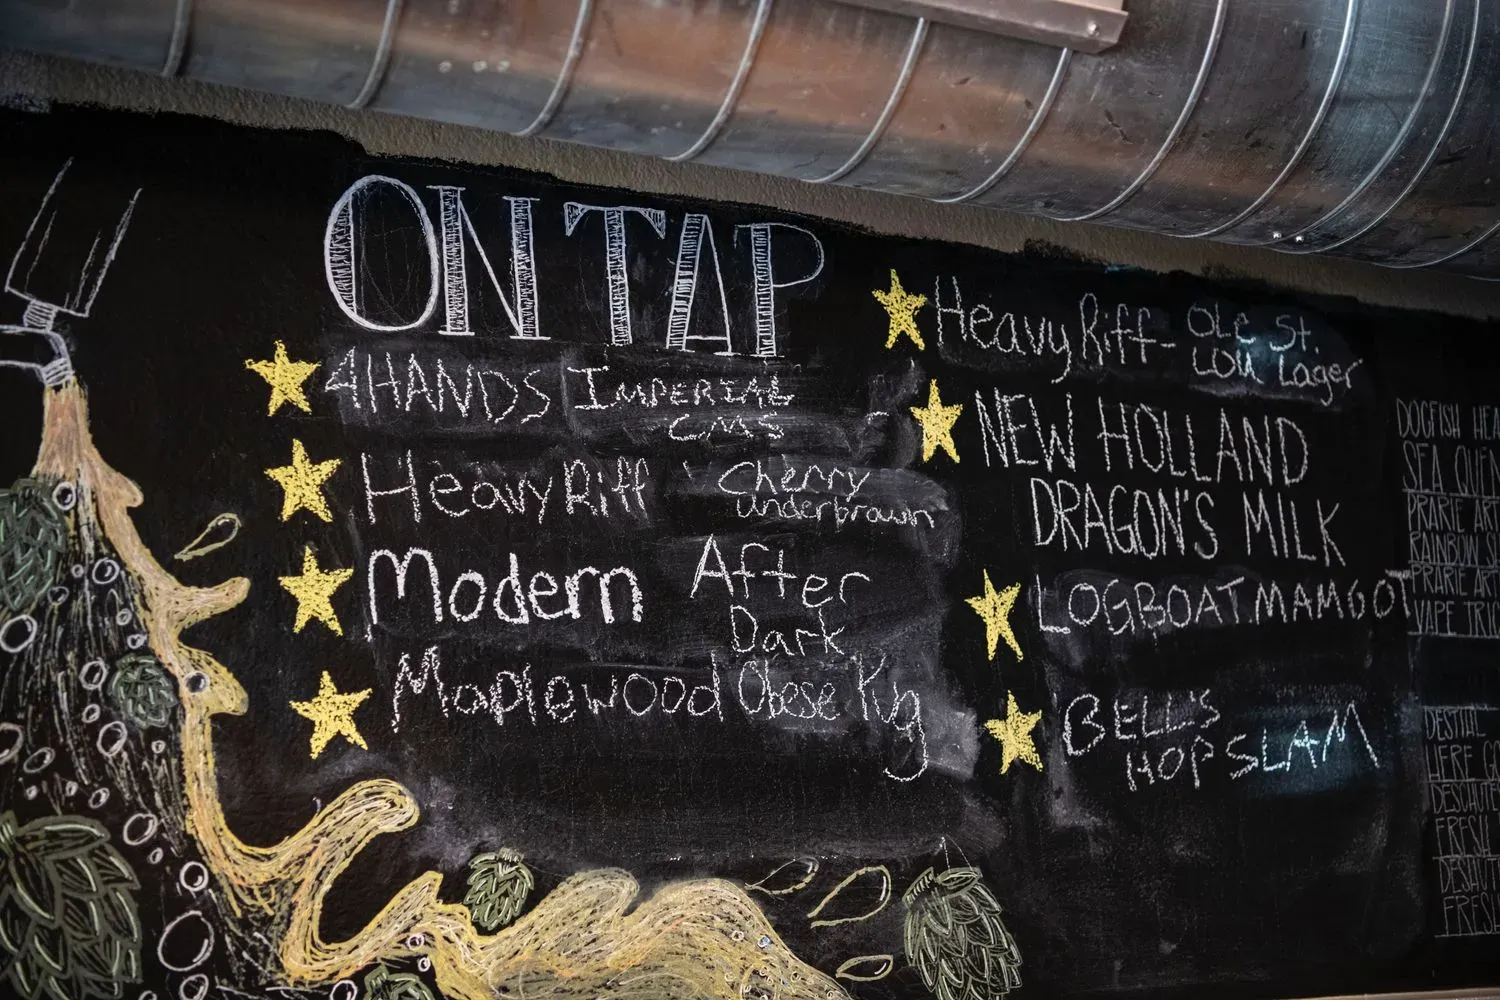 ON TAP
4HANDS IMPERIAL
CMS
Heavy Riff Cherry
underbrown
Modern After
Dark
Maplewood Obese Pug
Heavy Riff- OLE St.
LOU Lager
NEW HOLLAND
DRAGON'S MILK
LOGBOAT MAMOOT
BELL'S
HOP SLAM
DOGFISH HEA
SEA QUEN
PRARIE ART
RAINBOW S
PRARIE ART
VAPE TRI
DESTIAL
HERE GO
DESCHUTE
FRESH
DESHUT
FRES